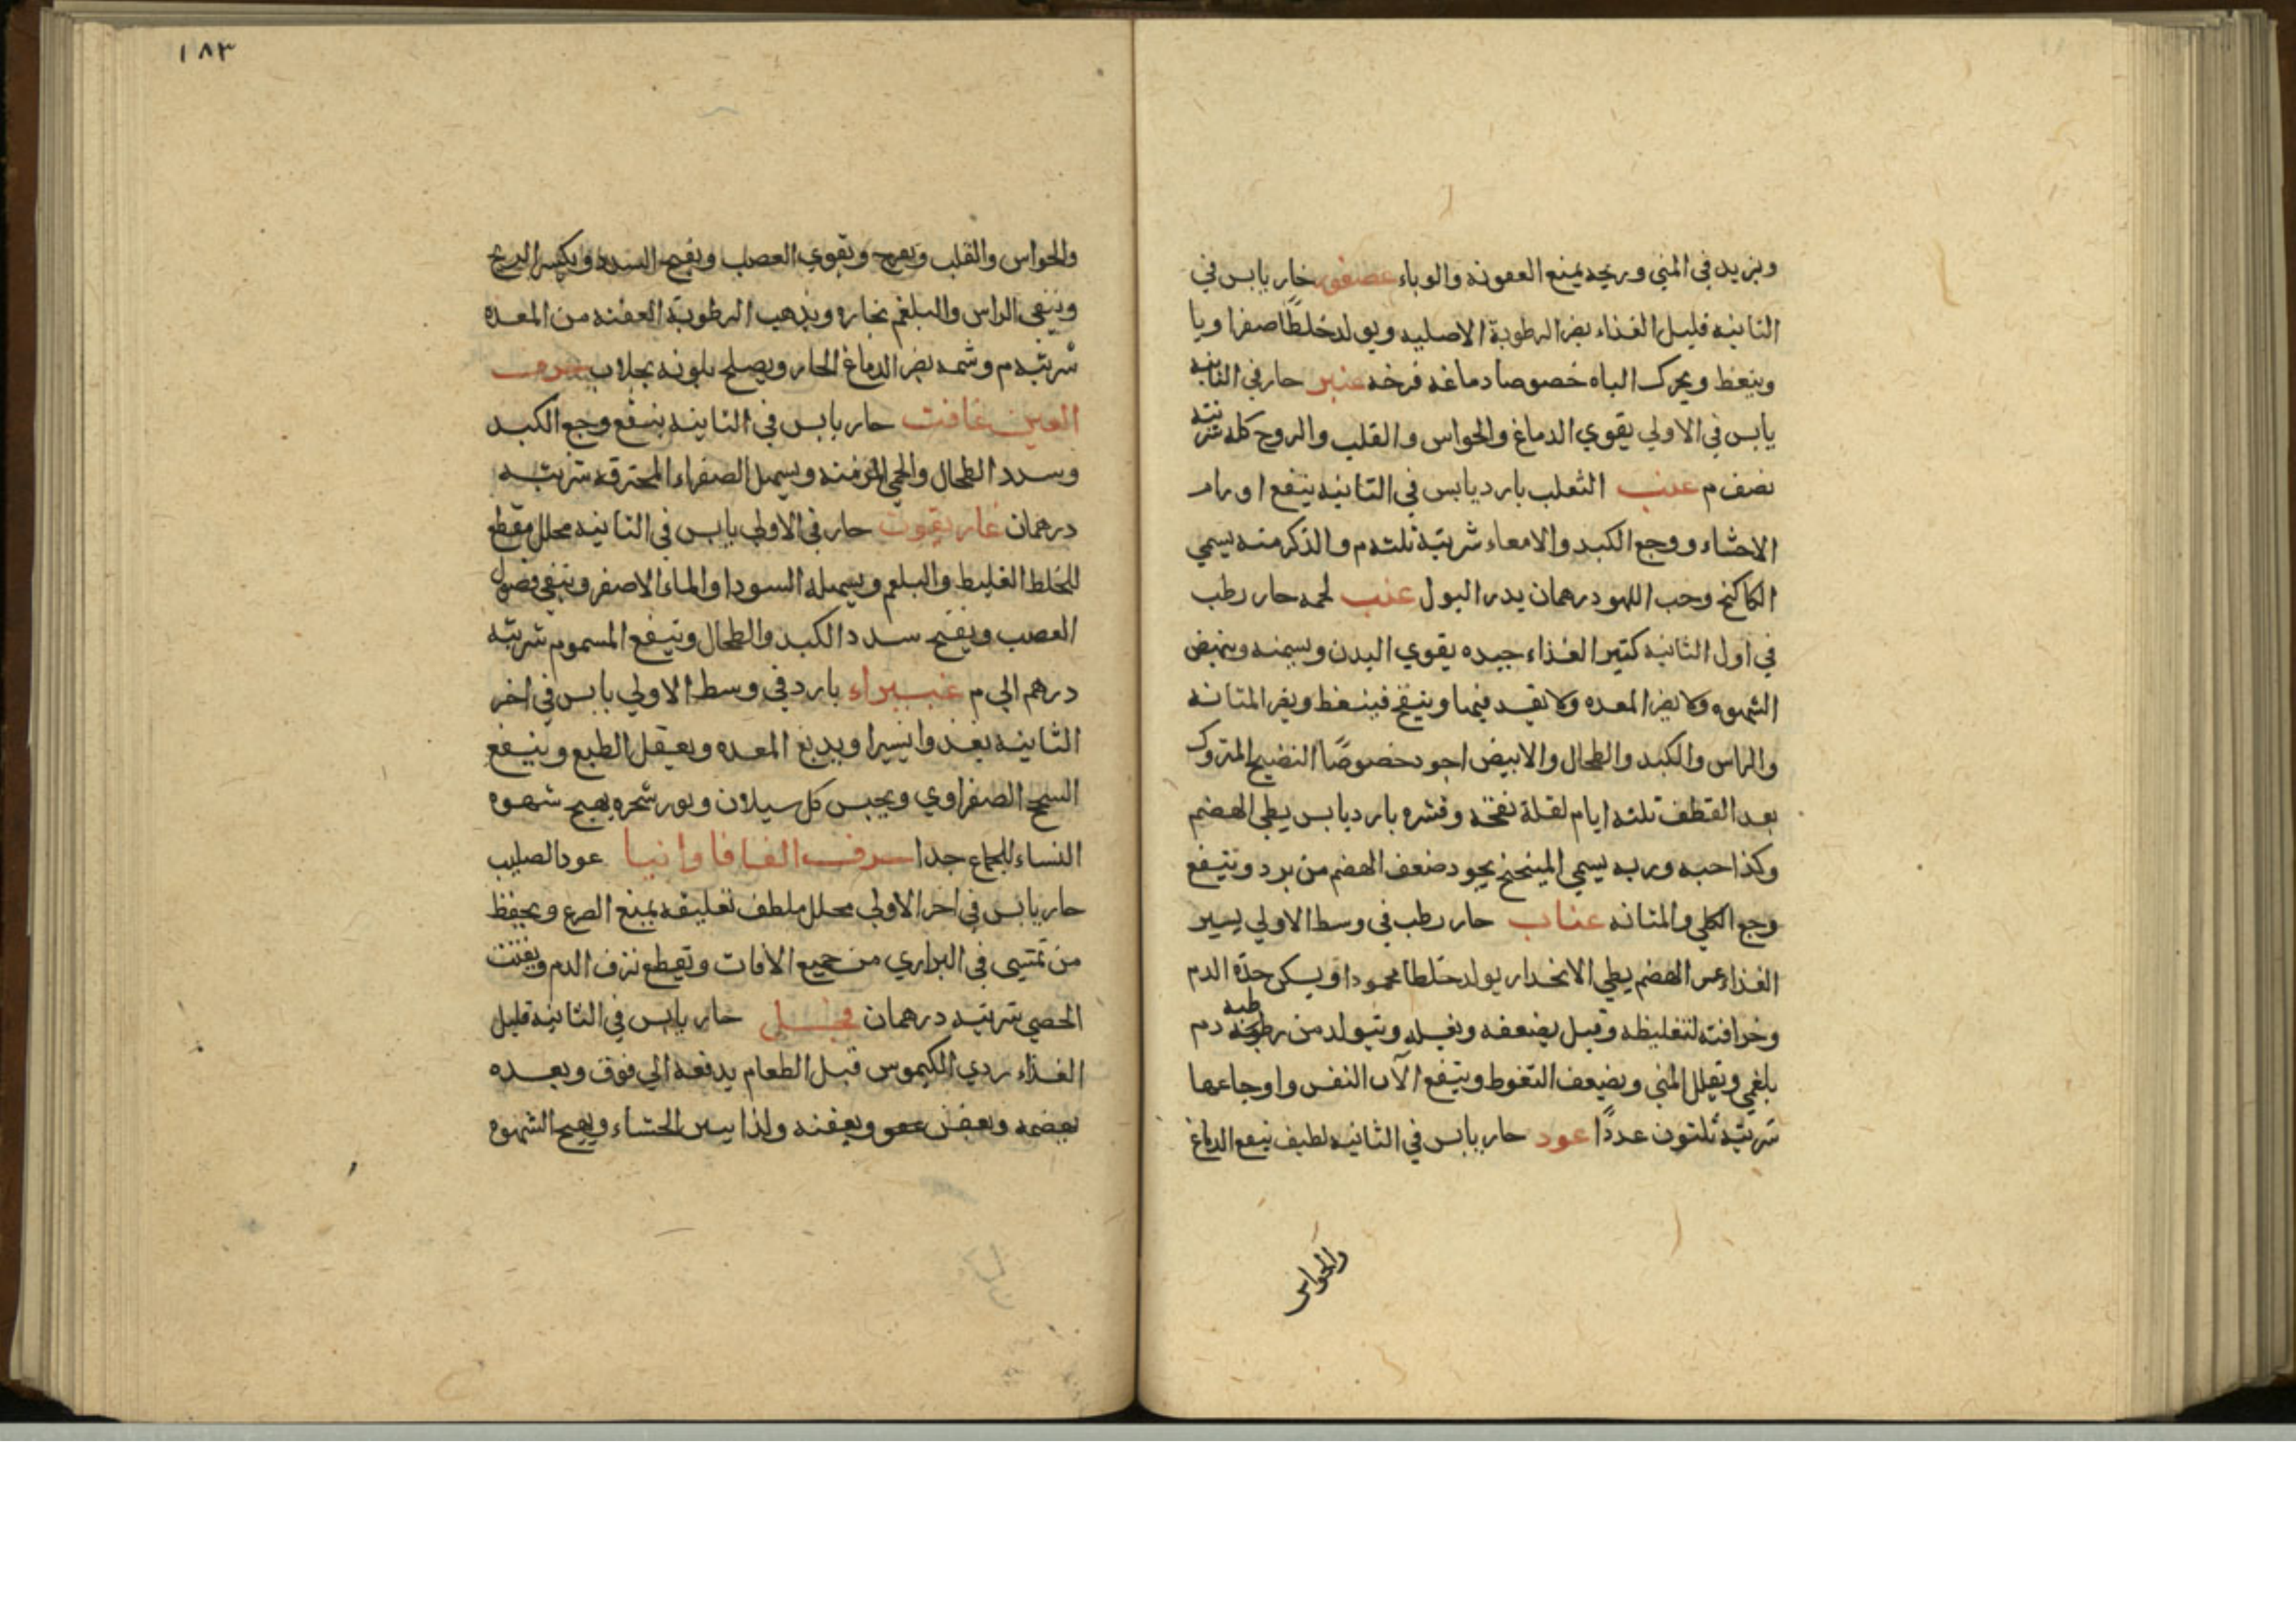 ويزيد في المني وريحه يمنع العفونه والوباء عصفور حار يابس في
الثانيه قليل الغذاء يضر الرطوبة الاصليه ويولد خلطًا صفراويا
وينعظ ويحرك الباه خصوصا دماغه فرخه عنبر حار في الثانيه
يابس في الاولي يقوي الدماغ والحواس والقلب والروح كله شربته
نصف م عنب الثعلب بارد يابس في الثانيه ينفع اورام
الاحشاء ووجع الكبد والامعاء شربته ثلثه م والذكر منه يسمي
الكاكنج وحب اللهو درهمان يدر البول عنب لحمه حار رطب
في اول الثانيه كثير الغذاء جيده يقوي البدن ويسمنه وينهض
الشهوه ولا يضر المعده ولا يفسد فيها وينفخ فينعظ ويضر المثانه
والراس والكبد والطحال والابيض اجود خصوصًا النضيج المتروك
بعد القطف ثلثه ايام لقلة نفخه وقشره بارد يابس بطي الهضم
وكذا حبه وربه يسمي الميبختج يجود ضعف الهضم من برد وينفع
وجع الكلي والمثانه عناب حار رطب في وسط الاولي يسير
الغذاء عسر الهضم بطي الانحدار يولد خلطا محمودا ويسكن حدّة الدم
وحرافته لتغليظه وقيل يضعفه ويولد من رطوبته دم
بلغمي ويقلل المني ويضعف التغوط وينفع الآت النفس واوجاعها
شربته ثلثون عددًا عود حار يابس في الثانيه لطيف ينفع الدماغ
والحواس
١٨٣
والحواس والقلب ويفرح ويقوي العصب ويفتح السدد ويكسر الريح
وينقي الراس والبلغم بخاره ويذهب الرطوبة العفنه من المعده
شربته م وشمه يضر الدماغ الحار ويصلح بجلاب حرف
الغين غافت حار يابس في الثانيه ينفع وجع الكبد
وسدد الطحال والحمي المزمنه ويسهل الصفراء المحترقه شربته
درهمان غاريقون حار في الاولي يابس في الثانيه محلل مقطع
للخلط الغليظ والبلغم ويسهله السودا والماء الاصفر وينقي فضول
العصب ويفتح سدد الكبد والطحال وينفع المسموم شربته
درهم الي م غبيراء بارد في وسط الاولي يابس في اخر
الثانيه يغذوا يسيرا ويدبغ المعده ويعقل الطبع وينفع
السحج الصفراوي ويحبس كل سيلان ونور شجره يهيج شهوه
النساء للجماع جدا حرف الفا فاوانيا عود الصليب
حار يابس في اخر الاولي محلل ملطف تعليقه يمنع الصرع ويحفظ
من تمشي في البراري من جميع الافات ويقطع نزف الدم ويفتت
الحصي شربته درهمان فجل حار يابس في الثانيه قليل
الغذاء ردي الكيموس قبل الطعام يدفعه الي فوق وبعده
يهضمه ويعفنه ولذا الجشاء ويهيج الشهوه